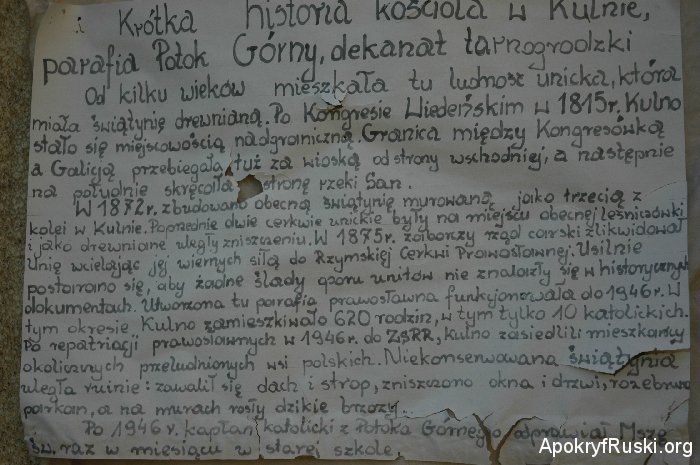 i Krótka historia kościoła w Kulnie,
parafia Potok Górny, dekanat tarnogrodzki
Od kilku wieków mieszkała tu ludność unicka, która
miała świątynię drewnianą. Po Kongresie Wiedeńskim w 1815r. Kulno
stało się miejscowością nadgraniczną. Granica między Kongresówką
a Galicją przebiegała tuż za wioską od strony wschodniej, a następnie
na południe skręcała stronę rzeki San.
W 1872r. zbudowano obecną świątynię murowaną, jako trzecią z
kolei w Kulnie. Poprzednie dwie cerkwie unickie były na miejscu obecnej leśniczówki
i jako drewniane uległy zniszczeniu. W 1875r. zaborczy rząd carski zlikwidował
Unię wcielając jej wiernych siłą do Rzymskiej Cerkwi Prawosławnej. Usilnie
postarano się, aby żadne ślady oporu unitów nie znalazły się w historycznych
dokumentach. Utworzona tu parafia prawosławna funkcjonowała do 1946r. W
tym okresie Kulno zamieszkiwało 620 rodzin, w tym tylko 10 katolickich.
Po repatriacji prawosławnych w 1946r. do ZSRR, Kulno zasiedlili mieszkańcy
okolicznych przeludnionych wsi polskich. Niekonserwowana świątynia
uległa ruinie: zawalił się dach i strop, zniszczono okna i drzwi, rozebrano
parkan, a na murach rosły dzikie brzozy.
Po 1946r. kapłan katolicki z Potoka Górnego odprawiał Mszę
św. raz w miesiącu w starej szkole.
ApokryfRuski.org